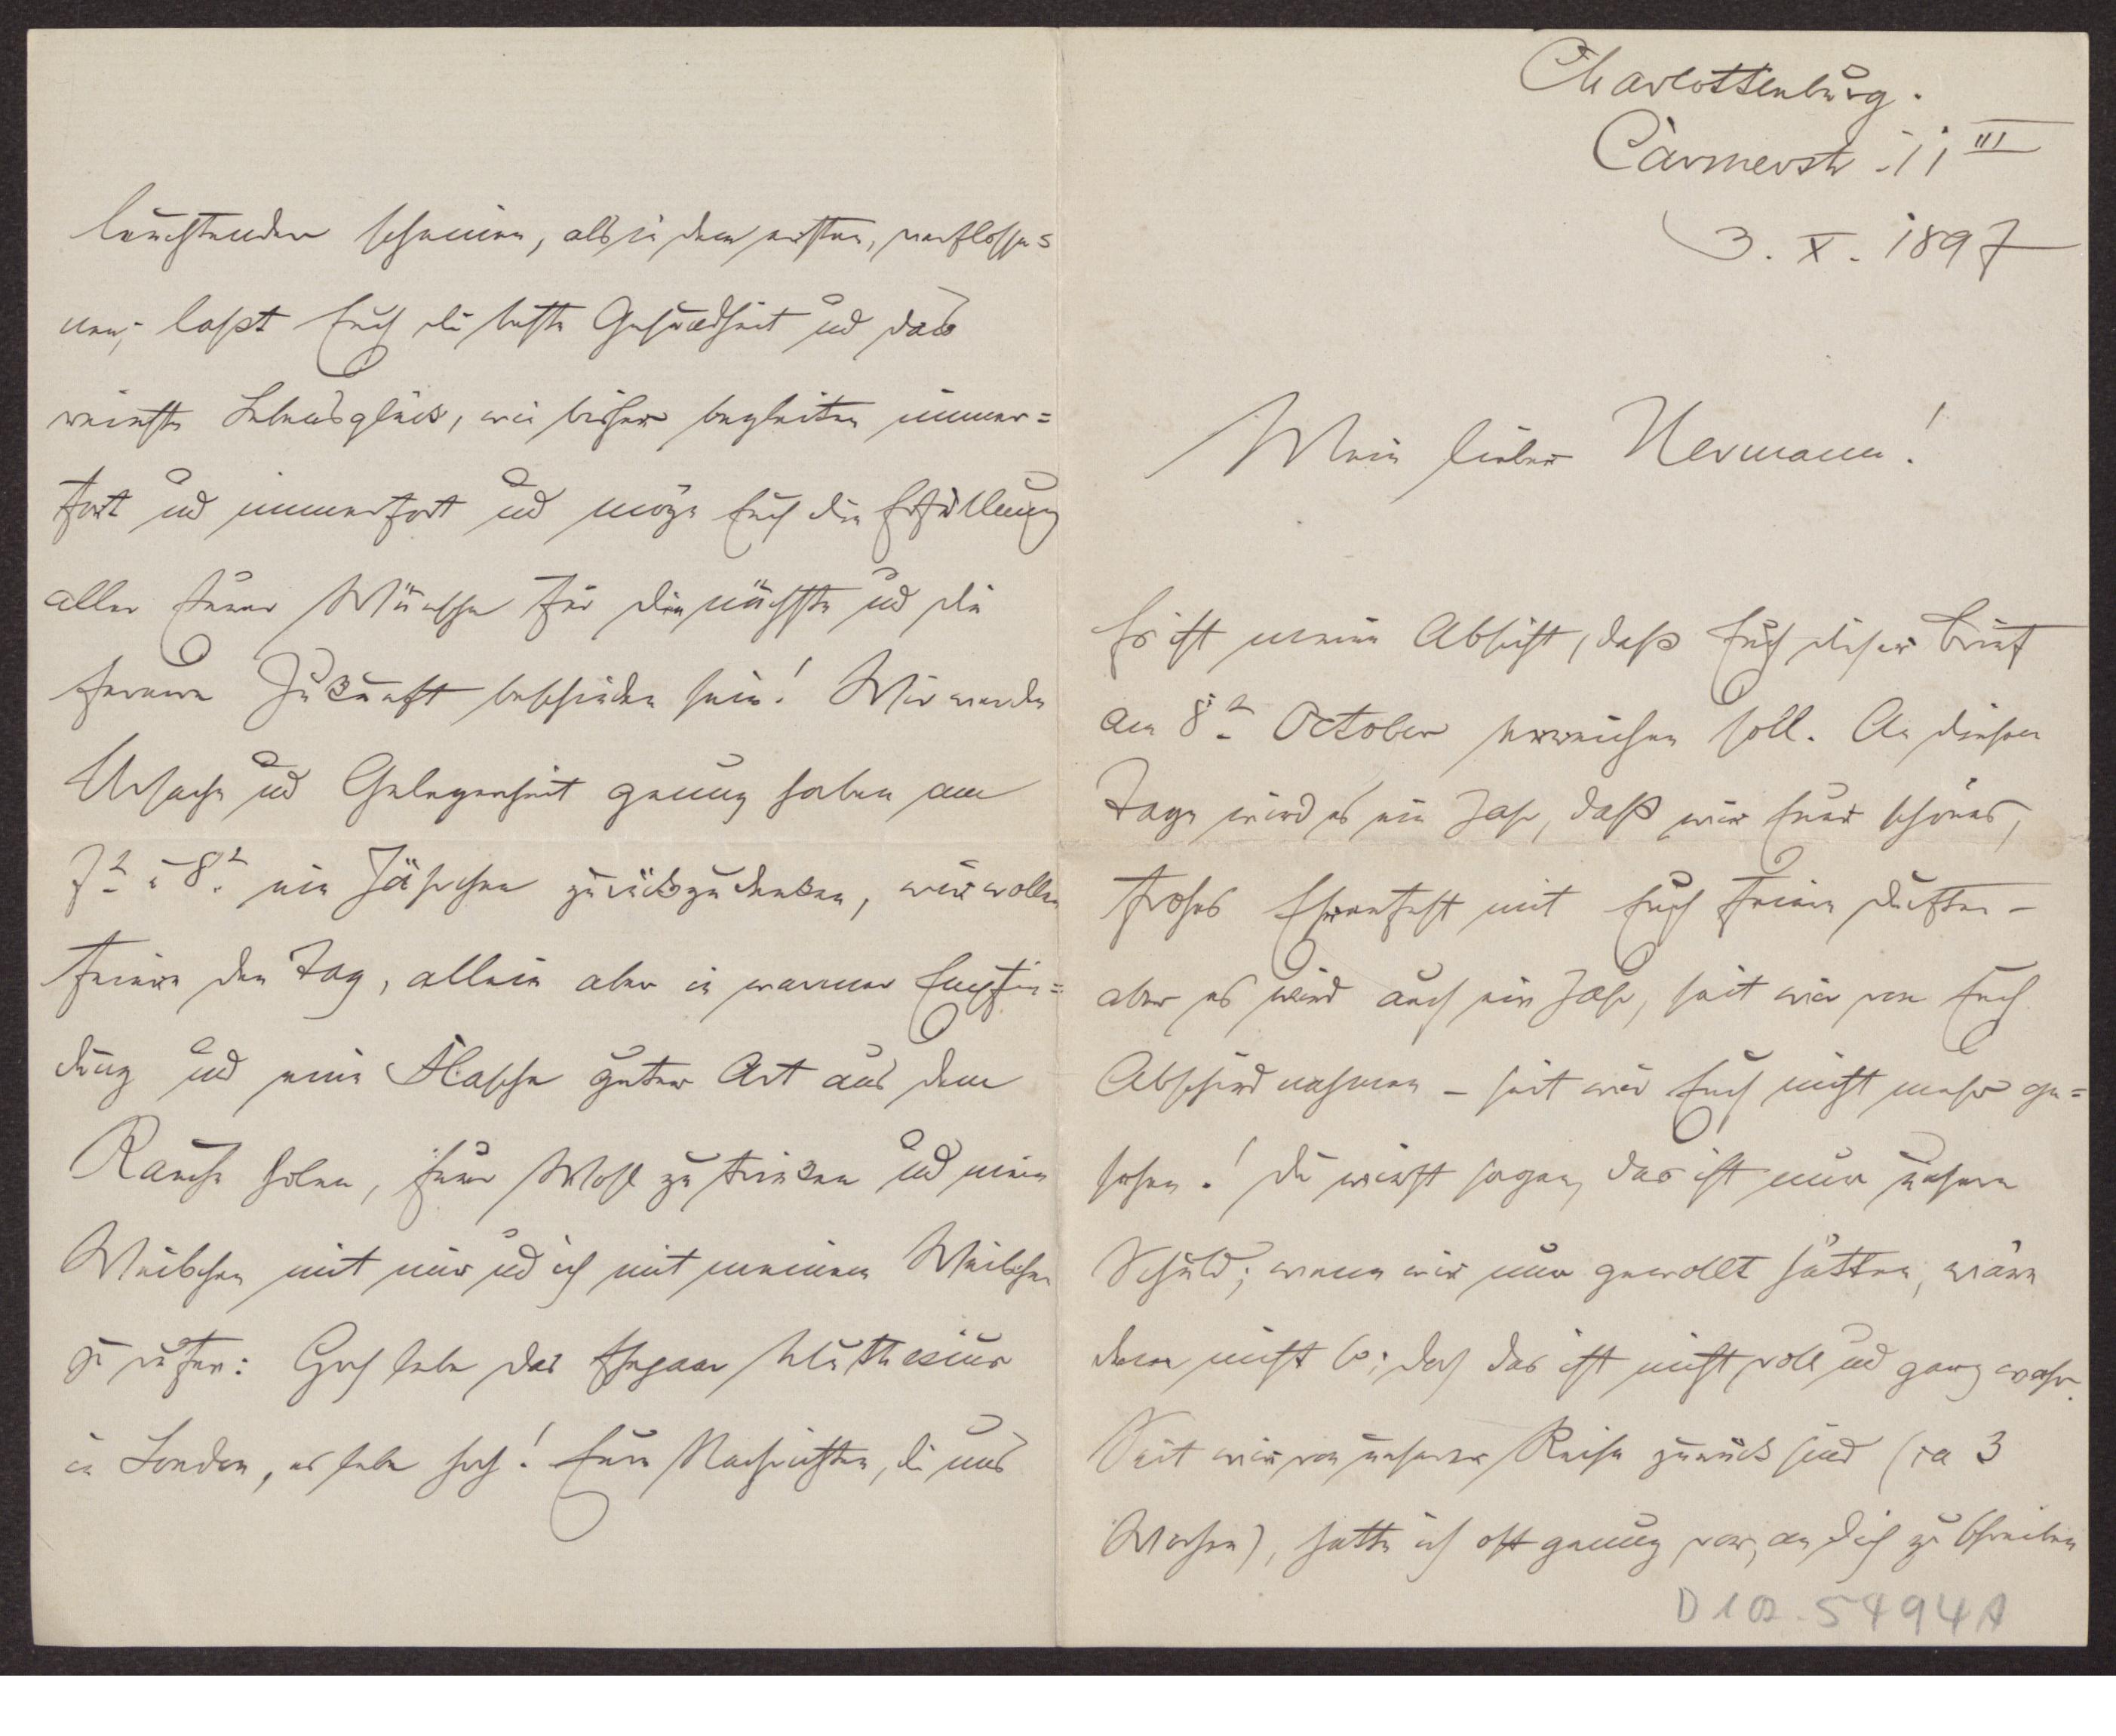 Charlottenburg.
Carmerstr. 11 III
3. X. 1897
Mein lieber Hermann!
Es ist meine Absicht, daß Euch dieser Brief
am 8t. October erreichen soll. An diesem
Tage wird es ein Jahr, daß wir Euer schönes,
frohes Ehrenfest mit Euch feiern durften –
aber es wird auch ein Jahr, seit wir von Euch
Abschied nahmen – seit wir Euch nicht mehr ge=
sehen! Du wirst sagen, das ist nur unsere
Schuld; wenn wir nur gewollt hätten, wäre
dem nicht so; doch das ist nicht voll und ganz wahr.
Seit wir von unserer Reise zurück sind (ca 3
Wochen), hatte ich oft genug vor, an Dich zu schreiben
D 102-5494A
leuchtender scheinen, als in dem ersten, verflosse=
nen; laßt Euch die beste Gesundheit und das
reinste Lebensglück, wie bisher begleiten immer=
fort und immerfort und möge Euch die Erfüllung
aller Eurer Wünsche für die nächste und die
fernere Zukunft beschieden sein! Wir werden
Ursache und Gelegenheit genug haben am
7t u 8t. ein Jährchen zurückzudenken, wir wollen
feiern den Tag, allein aber in warmer Empfin=
dung und eine Flasche guter Art aus dem
Rauche holen, Euer Wohl zu trinken und mein
Weibchen mit mir und ich mit meinem Weibchen
zu rufen: Hoch lebe das Ehepaar Muthesius
in London, es lebe hoch! Eure Nachrichten, die uns